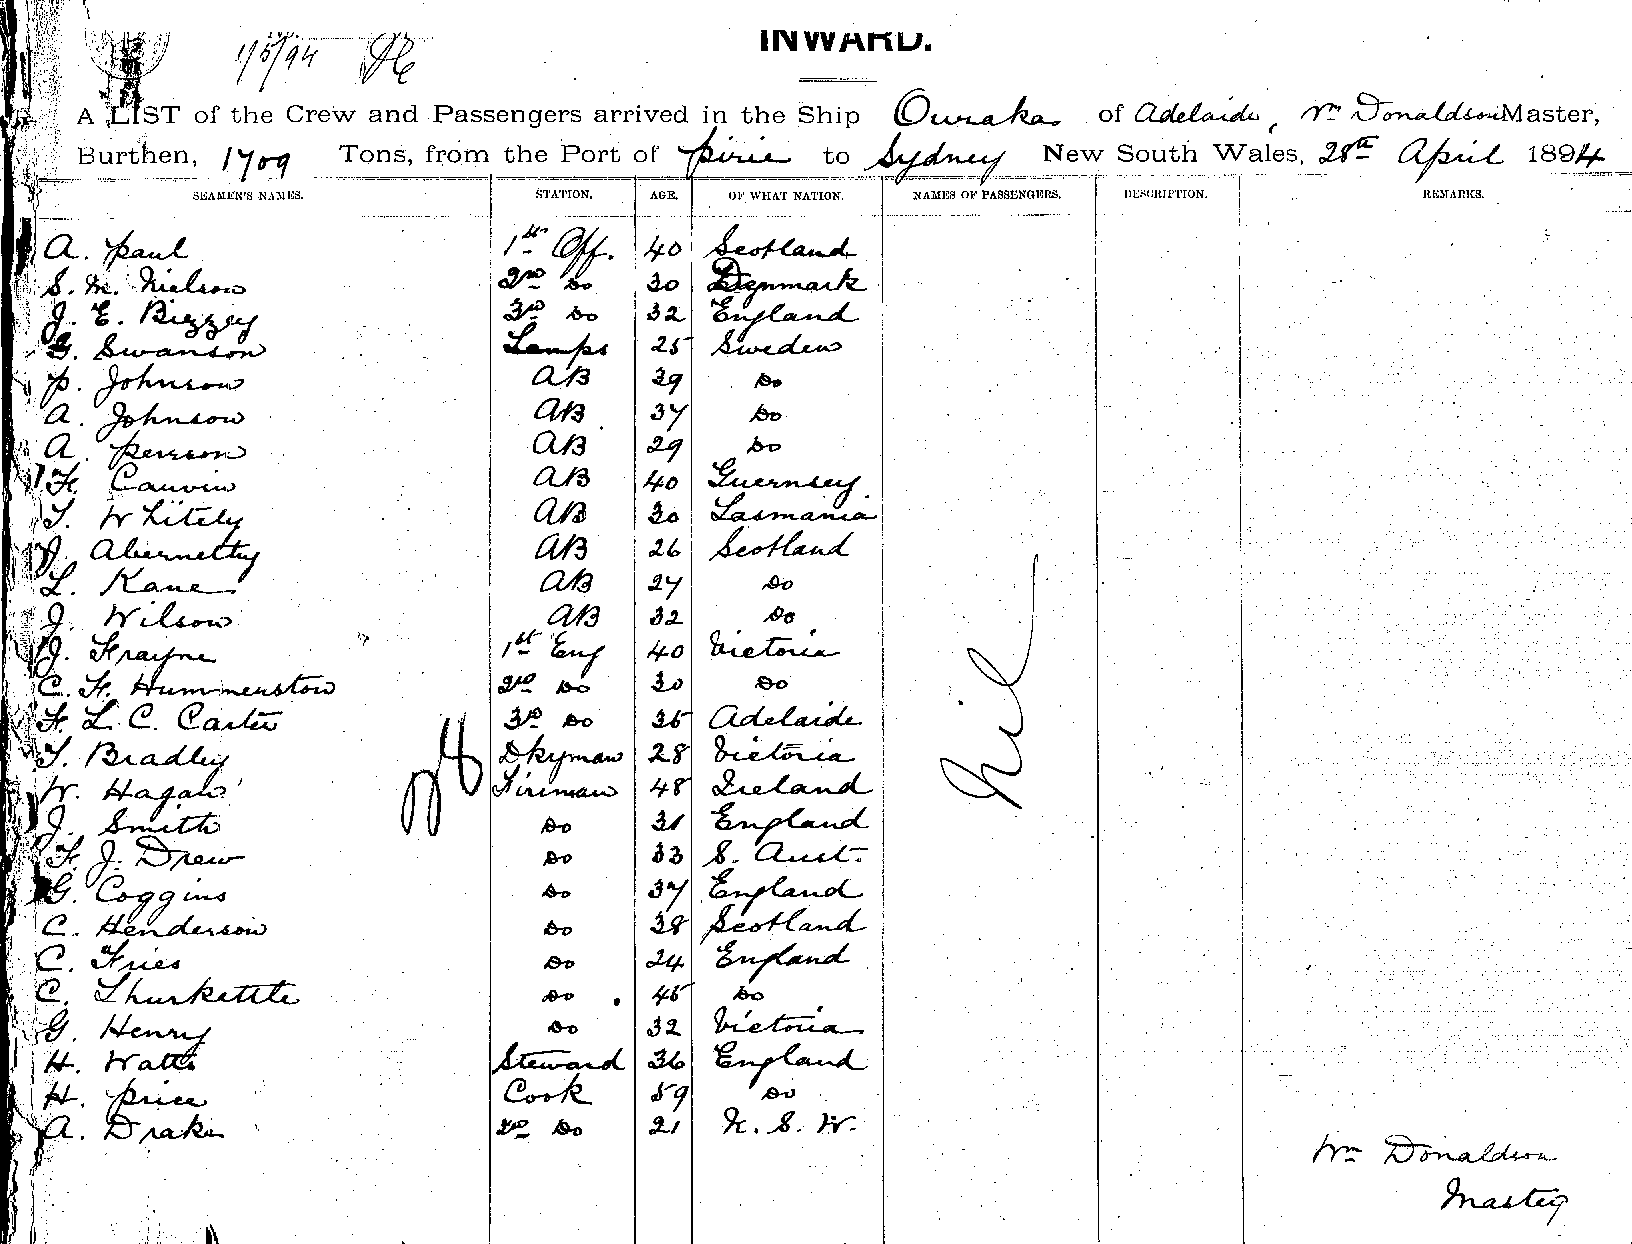 INWARD.
1/5/94
A LIST of the Crew and Passengers arrived in the Ship Ouraka of Adelaide, Wm Donaldson Master,
Burthen, 1709 Tons, from the Port of Pirie to Sydney New South Wales, 28th April 1894
SEAMEN'S NAMES. STATION. AGE. OF WHAT NATION. NAMES OF PASSENGERS. DESCRIPTION. REMARKS.
A. Paul 1st Off. 40 Scotland
S. M. Nielson 2nd Do 30 Denmark
J. E. Bizzey 3rd Do 32 England
G. Swanson Lamps 25 Sweden
P. Johnson AB 39 Do
A. Johnson AB 37 Do
A. Persson AB 29 Do
F. Cauvin AB 40 Guernsey
T. Whitely AB 30 Tasmania
J. Abernetty AB 26 Scotland
L. Kane AB 27 Do
J. Wilson AB 32 Do
J. Frayne 1st Eng 40 Victoria
C. F. Hummerstow 2nd Do 30 Do
F. L. C. Carter 3rd Do 35 Adelaide
T. Bradley Dkyman 28 Victoria
W. Hagan Fireman 48 Ireland
J. Smith Do 31 England
F. J. Drew Do 33 S. Aust.
G. Coggins Do 37 England
C. Henderson Do 38 Scotland
C. Fries Do 24 England
C. Thurkettle Do 45 Do
G. Henry Do 32 Victoria
H. Watts Steward 36 England
H. Price Cook 59 Do
A. Drake 2nd Do 21 N. S. W.
27
Nil
Wm Donaldson
Master